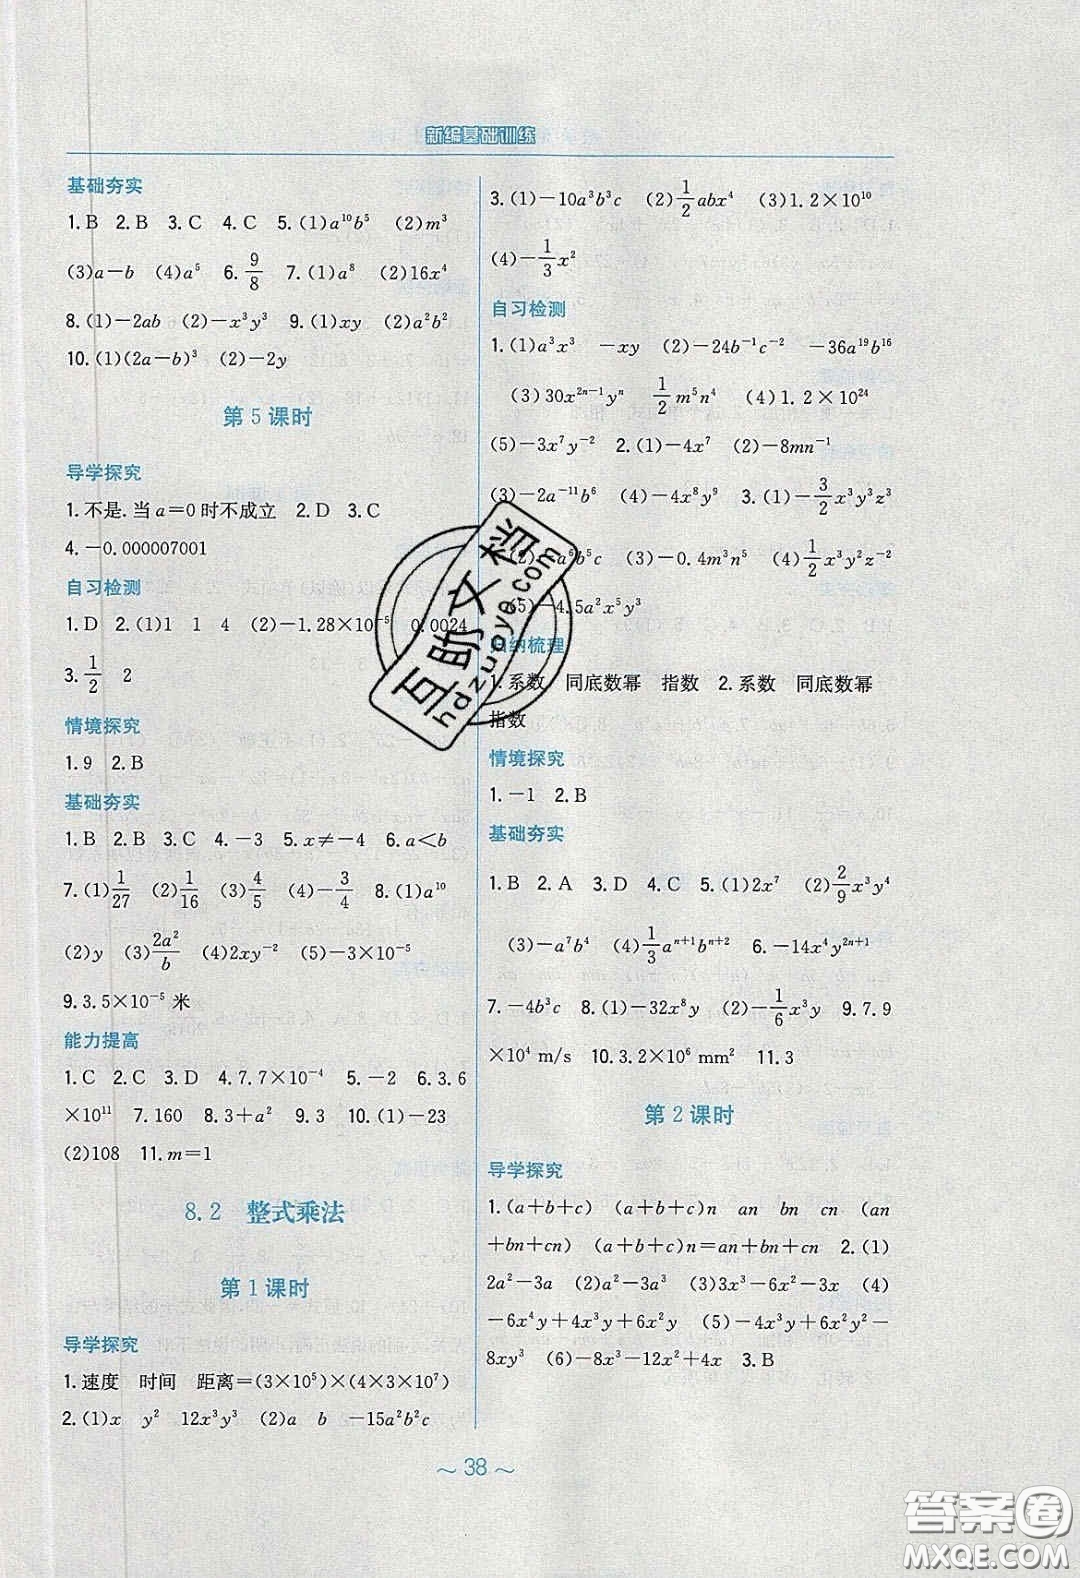 新编基础训练
基础夯实
1. B 2. B 3. C 4. C 5. (1)a¹⁰b⁵ (2)m³
(3)a−b (4)a⁵ 6. 9/8 7. (1)a⁸ (2)16x⁴
8. (1)−2ab (2)−x³y³ 9. (1)xy (2)a²b²
10. (1)(2a−b)³ (2)−2y
第 5 课时
导学探究
1. 不是. 当 a=0 时不成立 2. D 3. C
4. −0.000007001
自习检测
1. D 2. (1)1 1 4 (2)−1.28×10⁻⁵ 0.0024
3. 1/2 2
情境探究
1. 9 2. B
基础夯实
1. B 2. B 3. C 4. −3 5. x≠−4 6. a<b
7. (1)1/27 (2)1/16 (3)4/5 (4)−3/4 8. (1)a¹⁰
(2)y (3)2a²/b (4)2xy⁻² (5)−3×10⁻⁵
9. 3.5×10⁻⁵ 米
能力提高
1. C 2. C 3. D 4. 7.7×10⁻⁴ 5. −2 6. 3.6
×10¹¹ 7. 160 8. 3+a² 9. 3 10. (1)−23
(2)108 11. m=1
8.2 整式乘法
第 1 课时
导学探究
1. 速度 时间 距离=(3×10⁵)×(4×3×10⁷)
2. (1)x y² 12x³y³ (2)a b −15a²b²c
3. (1)−10a³b³c (2)1/2abx⁴ (3)1.2×10¹⁰
(4)−1/3x²
自习检测
1. (1)a³x³ −xy (2)−24b⁻¹c⁻² −36a¹⁹b¹⁶
(3)30x²ⁿ⁻¹yⁿ 1/2m⁵n⁴ (4)1.2×10²⁴
(5)−3x⁷y⁻² 2. (1)−4x⁷ (2)−8mn⁻¹
(3)−2a⁻¹¹b⁶ (4)−4x⁸y⁹ 3. (1)−3/2x³y³z³
a⁶b⁵c (3)−0.4m³n⁵ (4)1/2x³y²z⁻²
(5)−4.5a²x⁵y³
归纳梳理
1. 系数 同底数幂 指数 2. 系数 同底数幂
指数
情境探究
1. −1 2. B
基础夯实
1. B 2. A 3. D 4. C 5. (1)2x⁷ (2)2/9x³y⁴
(3)−a⁷b⁴ (4)1/3aⁿ⁺¹bⁿ⁺² 6. −14x⁴y²ⁿ⁺¹
7. −4b³c 8. (1)−32x⁸y (2)−1/6x³y 9. 7.9
×10⁴ m/s 10. 3.2×10⁶ mm² 11. 3
第 2 课时
导学探究
1. (a+b+c) (a+b+c)n an bn cn (an
+bn+cn) (a+b+c)n=an+bn+cn 2. (1)
2a²−3a (2)a²−3a (3)3x³−6x²−3x (4)
−6x⁴y+4x³y+6x²y (5)−4x³y+6x²y²−
8xy³ (6)−8x³−12x²+4x 3. B
～38～
互助文档
hdzuoye.com
答案圈
MXQE.COM